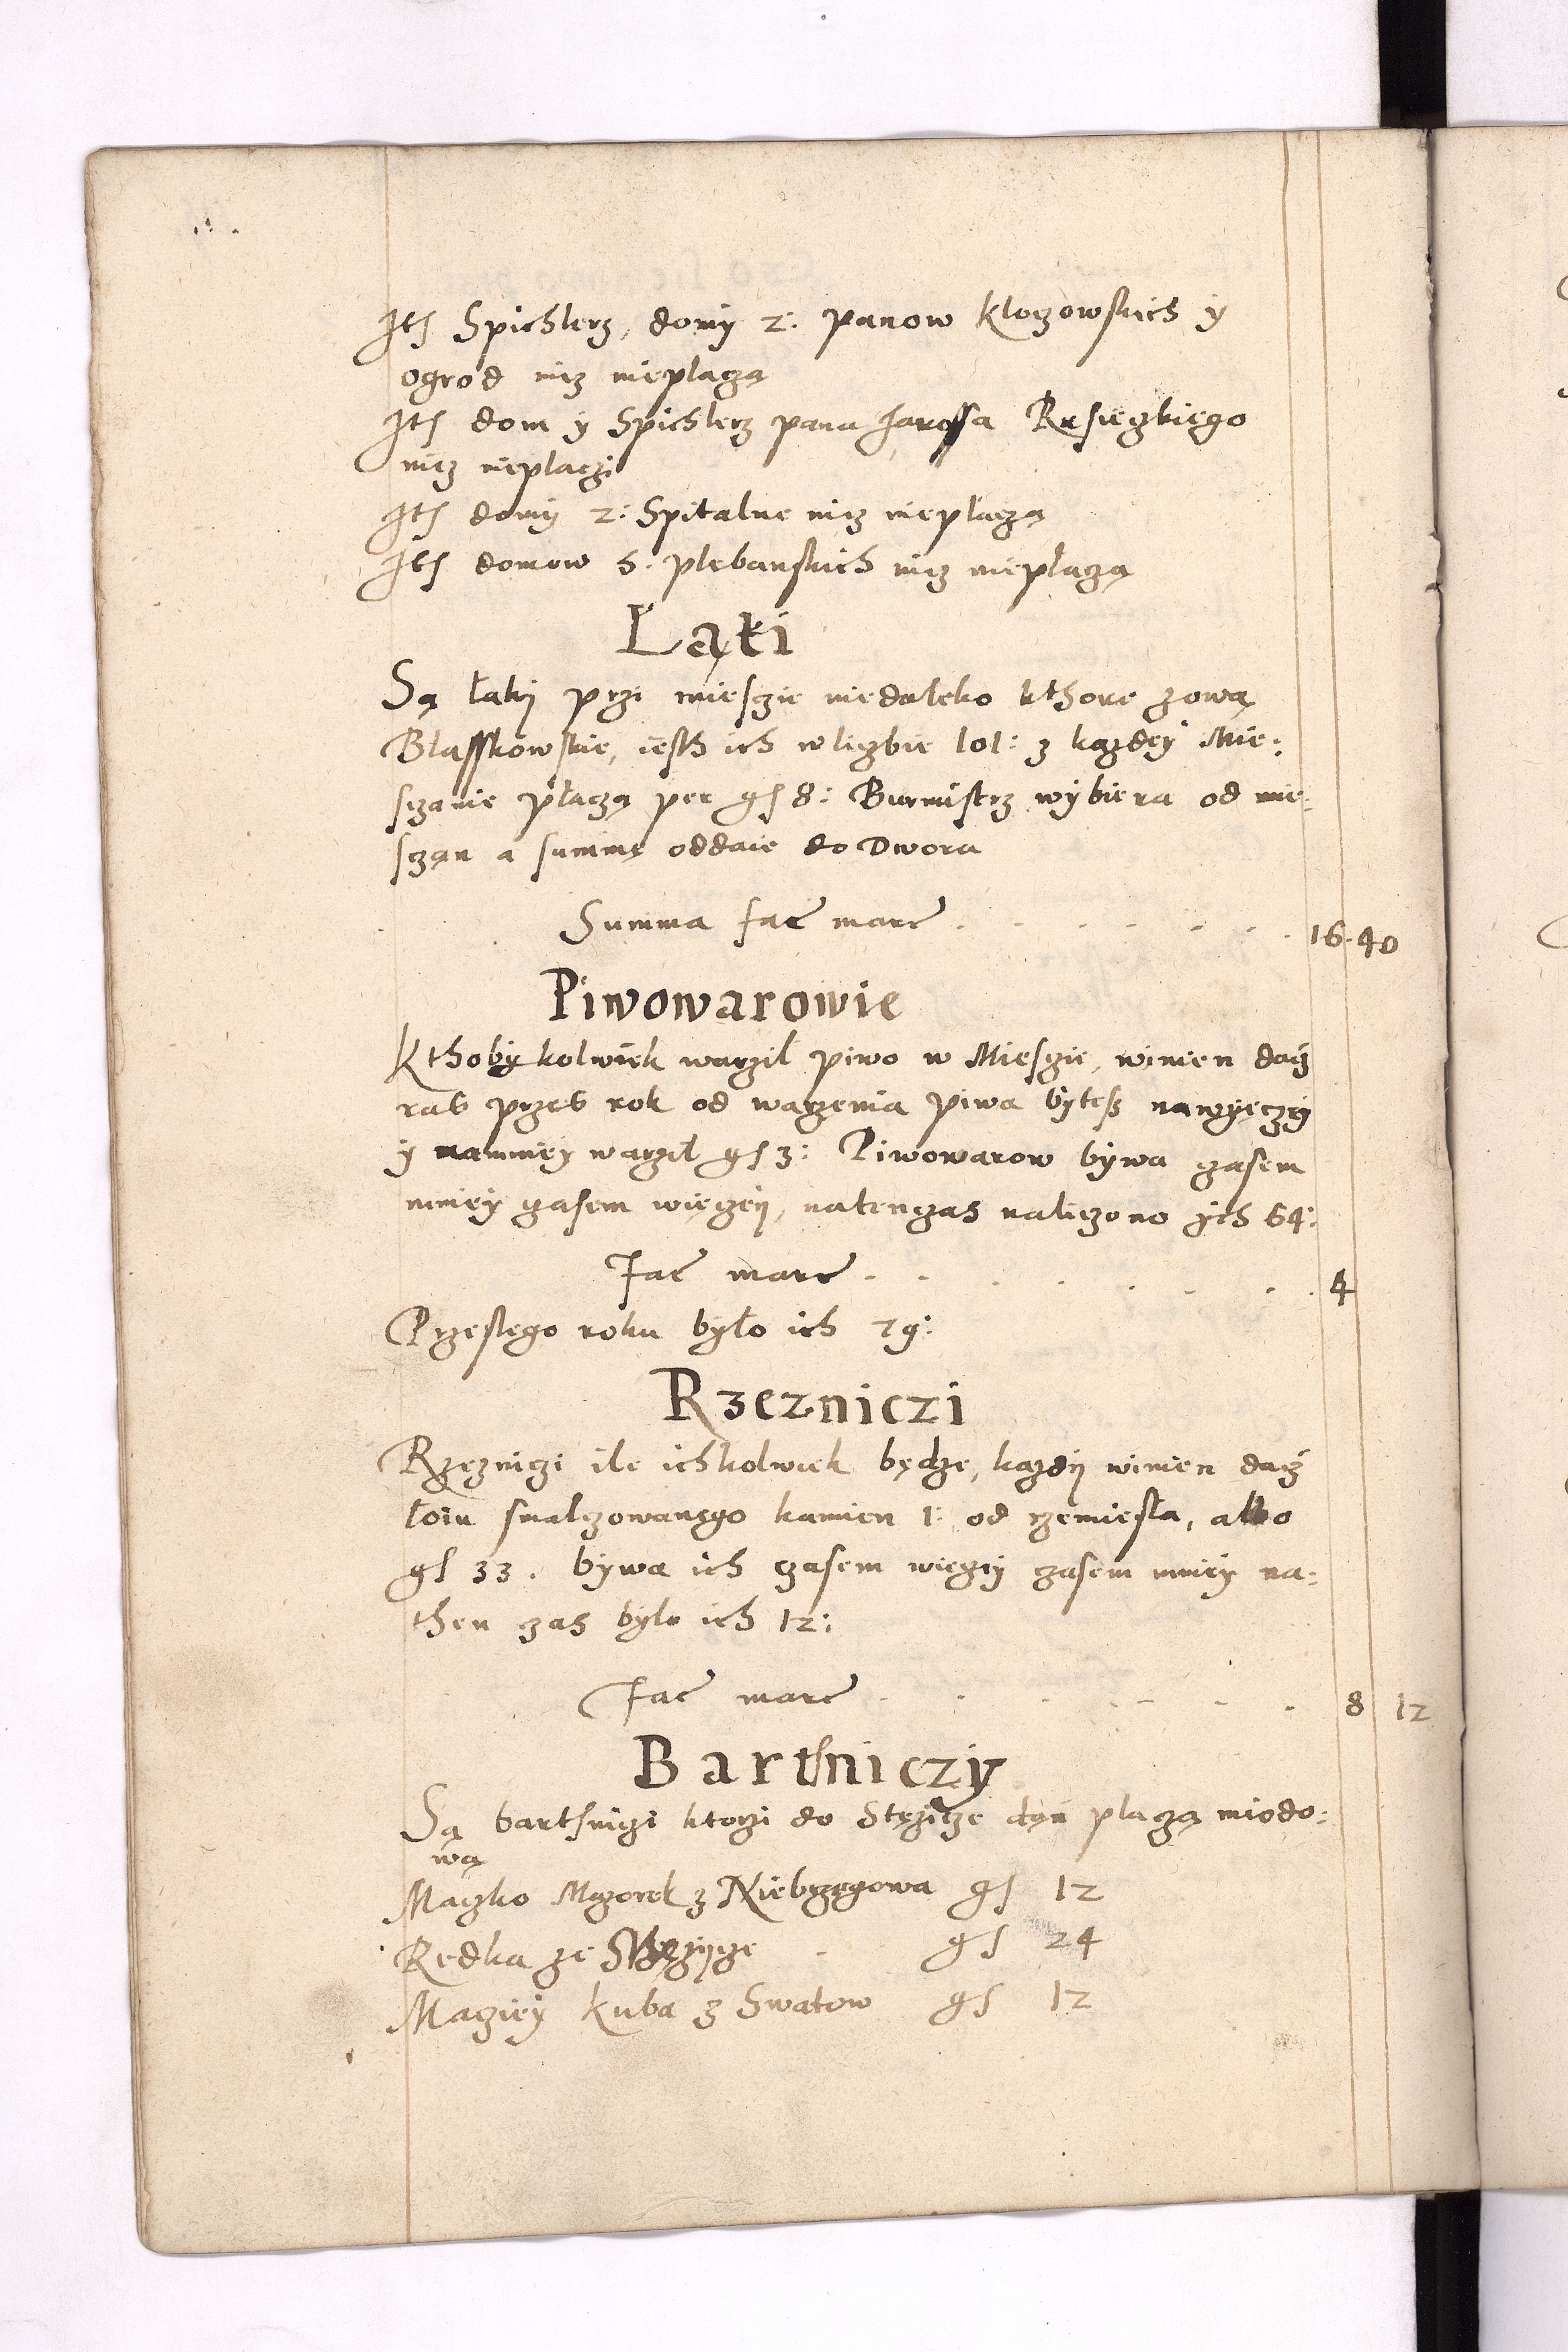 Itē Spichlerz, domy 2: panow Kloczowskich y
ogrod nicz nieplaczą
Itē dom y Spichlerz pana Jarossa Rusieczkiego
nicz nieplaczi
Itē domy 2: Spitalne nicz nieplaczą
Itē domow 5. plebanskich nicz nieplaczą
Łąki
Są łakij przi miesczie niedaleko kthore zową
Błasskowskie, iesth ich w liczbie 101: z kazdey Mie:
sczanie płaczą per gs 8: Burmistrz wybiera od mie:
sczan a summę oddaie do Dwora
Summa fac marc . . . . . . 16. 40
Piwowarowie
Kthobykolwiek warzil piwo w Miesczie, winien dacz
ras przes rok od warzenia piwa bytesz nawyęczey
y namniey warzil gs 3: Piwowarow bywa czasem
mniey czasem więczey, natenczas naliczono ych 64:
Fac marc . . . . . . . 4
Przeslego roku było ich 79:
Rzezniczi
Rzezniczi ile ichkolwiek będze, kazdy winien dacz
łoiu smalczowanego kamien 1: od rzemiesla, albo
gs 33. bywa ich czasem więczey czasem mniey na:
then czas było ich 12:
Fac marc . . . . . . . 8 12
Barthniczy
Są barthniczi ktorzi do Stęzicze dan placzą miodo:
wą
Maczko Mazorek z Niebrzegowa gs 12
Redka ze . gs 24
Macziey Kuba z Swatow gs 12